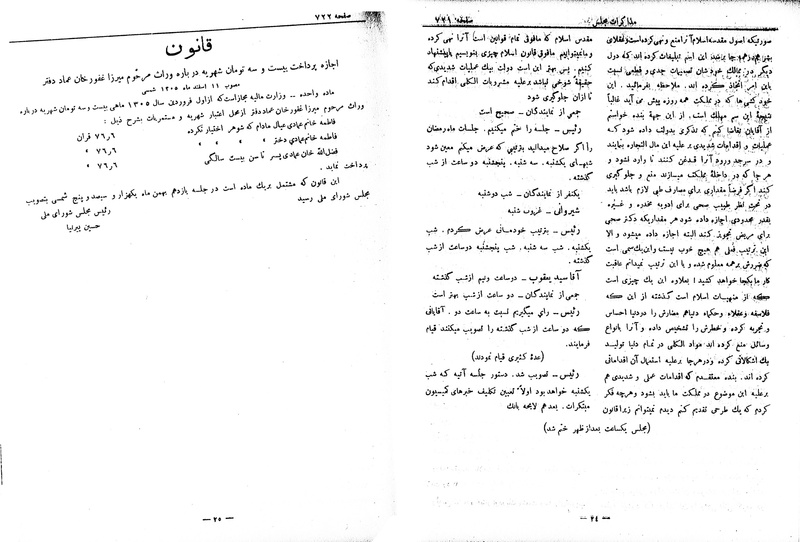 صفحه ۷۲۱
مذاکرات مجلس
صورتیکه اصول مقدسه اسلام آنرا منع و نهی کرده است و عقلای
دیگر در ممالک خودشان تصمیمات جدی و قطعی نسبت
باین امر اتخاذ کرده‌اند. ملاحظه بفرمائید. این
خودکشی‌ها که در مملکت همه روزه پیش می‌آید غالباً
نتیجهٔ این سم مهلک است. از این جههٔ بنده خواستم
از آقایان تقاضا کنم که تذکری بدولت داده شود که
عملیات و اقدامات شدیدی بر علیه این مال التجاره بنمایند
و در سرحد ورود آنرا قدغن کنند تا وارد نشود و
هر جا که در داخلهٔ مملکت میسازند منع و جلوگیری
کنند اگر فرضاً مقداری برای مصارف طبی لازم باشد باید
در تحت نظر طبیب صحی برای ادویه مخدره و غیره
بقدر محدودی اجازه داده شود هر مقداریکه دکتر صحی
برای مریض تجویز کند البته اجازه داده میشود والا
این ترتیب فعلی هم هیچ خوب نیست و این یک سمی است
که ضررش بر همه معلوم شده و با این ترتیب نمیدانم عاقبت
کار ما بکجا خواهد کشید؛ بعلاوه این یک چیزی است
که از منهیات اسلام است گذشته از این که
فلاسفه و عقلاء و حکماء دنیا هم مضارش را در دنیا احساس
و تجربه کرده و خطرش را تشخیص داده و آنرا بانواع
وسائل منع کرده‌اند مواد الکلی در تمام دنیا تولید
یک اشکالاتی کرده و در هر جا بر علیه استعمال آن اقداماتی
کرده‌اند. بنده معتقدم که اقدامات عملی و شدیدی هم
بر علیه این موضوع در مملکت ما باید بشود و هر چه فکر
کردم که یک طرحی تقدیم کنم دیدم نمیتوانم زیرا قانون
مقدس اسلام که مافوق تمام قوانین است آنرا نهی کرده
و ما نمیتوانیم مافوق قانون اسلام چیزی بنویسیم یا پیشنهاد
کنیم. پس بهتر این است دولت یک عملیات شدیدی که
حقیقة شوخی نباشد بر علیه مشروبات الکلی اقدام کند
تا از آن جلوگیری شود
جمعی از نمایندگان – صحیح است
رئیس – جلسه را ختم میکنیم. جلسات ماه رمضان
را اگر صلاح میدانید بترتیبی که عرض میکنم معین شود
شبهای یکشنبه. سه شنبه. پنجشنبه دو ساعت از شب
گذشته.
یکنفر از نمایندگان – شب دوشنبه
شیروانی – غروب شنبه
رئیس – بترتیب خودمانی عرض کردم. شب
یکشنبه. شب سه شنبه. شب پنجشنبه دو ساعت از شب
گذشته.
آقا سید یعقوب – دو ساعت و نیم از شب گذشته
جمعی از نمایندگان – دو ساعت از شب بهتر است
رئیس – رای میگیریم نسبت به ساعت دو. آقایانی
که دو ساعت از شب گذشته را تصویب میکنند قیام
فرمایند.
(عدهٔ کثیری قیام نمودند)
رئیس – تصویب شد. دستور جلسه آتیه که شب
یکشنبه خواهد بود اولاً تعیین تکلیف خبرهای کمیسیون
مبتکرات. بعد هم لایحه بانک
(مجلس یکساعت بعد از ظهر ختم شد)
– ۲۴ –
صفحه ۷۲۲
قانون
اجازه پرداخت بیست و سه تومان شهریه در باره وراث مرحوم میرزا غفور خان عماد دفتر
مصوب ۱۱ اسفند ماه ۱۳۰۵ شمسی
ماده واحده – وزارت مالیه مجاز است که از اول فروردین سال ۱۳۰۵ ماهی بیست و سه تومان شهریه در باره
وراث مرحوم میرزا غفور خان عماد دفتر از محل اعتبار شهریه و مستمریات بشرح ذیل :
فاطمه خانم عمادی عیال مادام که شوهر اختیار نکرده ۷۶٫۶ قران
فاطمه خانم عمادی دختر " " " " ۷۶٫۶ "
فضل الله خان عمادی پسر تا سن بیست سالگی ۷۶٫۶ "
پرداخت نماید.
این قانون که مشتمل بر یک ماده است در جلسه یازدهم بهمن ماه یکهزار و سیصد و پنج شمسی بتصویب
مجلس شورای ملی رسید
رئیس مجلس شورای ملی
حسین پیرنیا
– ۲۵ –